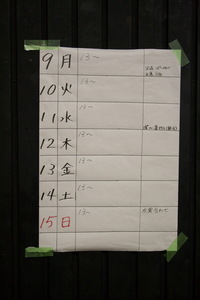 9 月 13〜
10 火 13〜
11 水 13〜
12 木 13〜
13 金 13〜
14 土 13〜
15 日 13〜